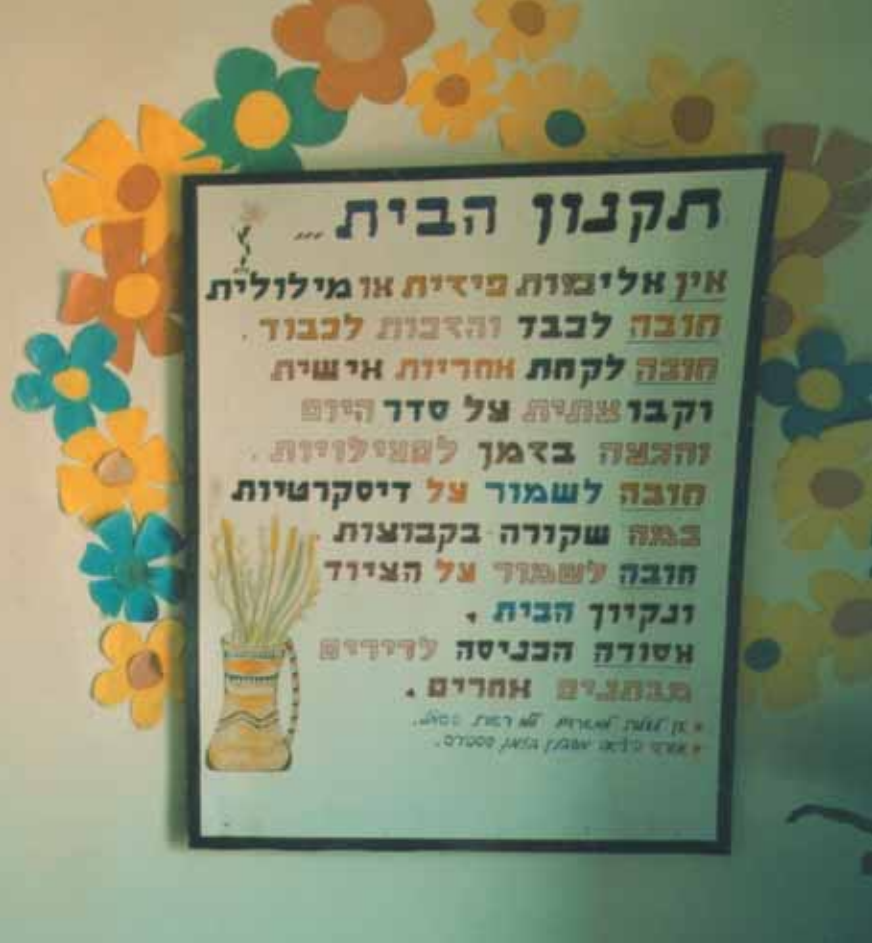 תקנון הבית ...
אין אלימות פיזית או מילולית
חובה לכבד והזכות לכבוד.
חובה לקחת אחריות אישית
וקבוצתית על סדר היום
והגעה בזמן לפעילויות.
חובה לשמור על דיסקרטיות
במה שקורה בקבוצות.
חובה לשמור על הציוד
ונקיון הבית.
אסורה הכניסה לדיירים
מבתים אחרים.